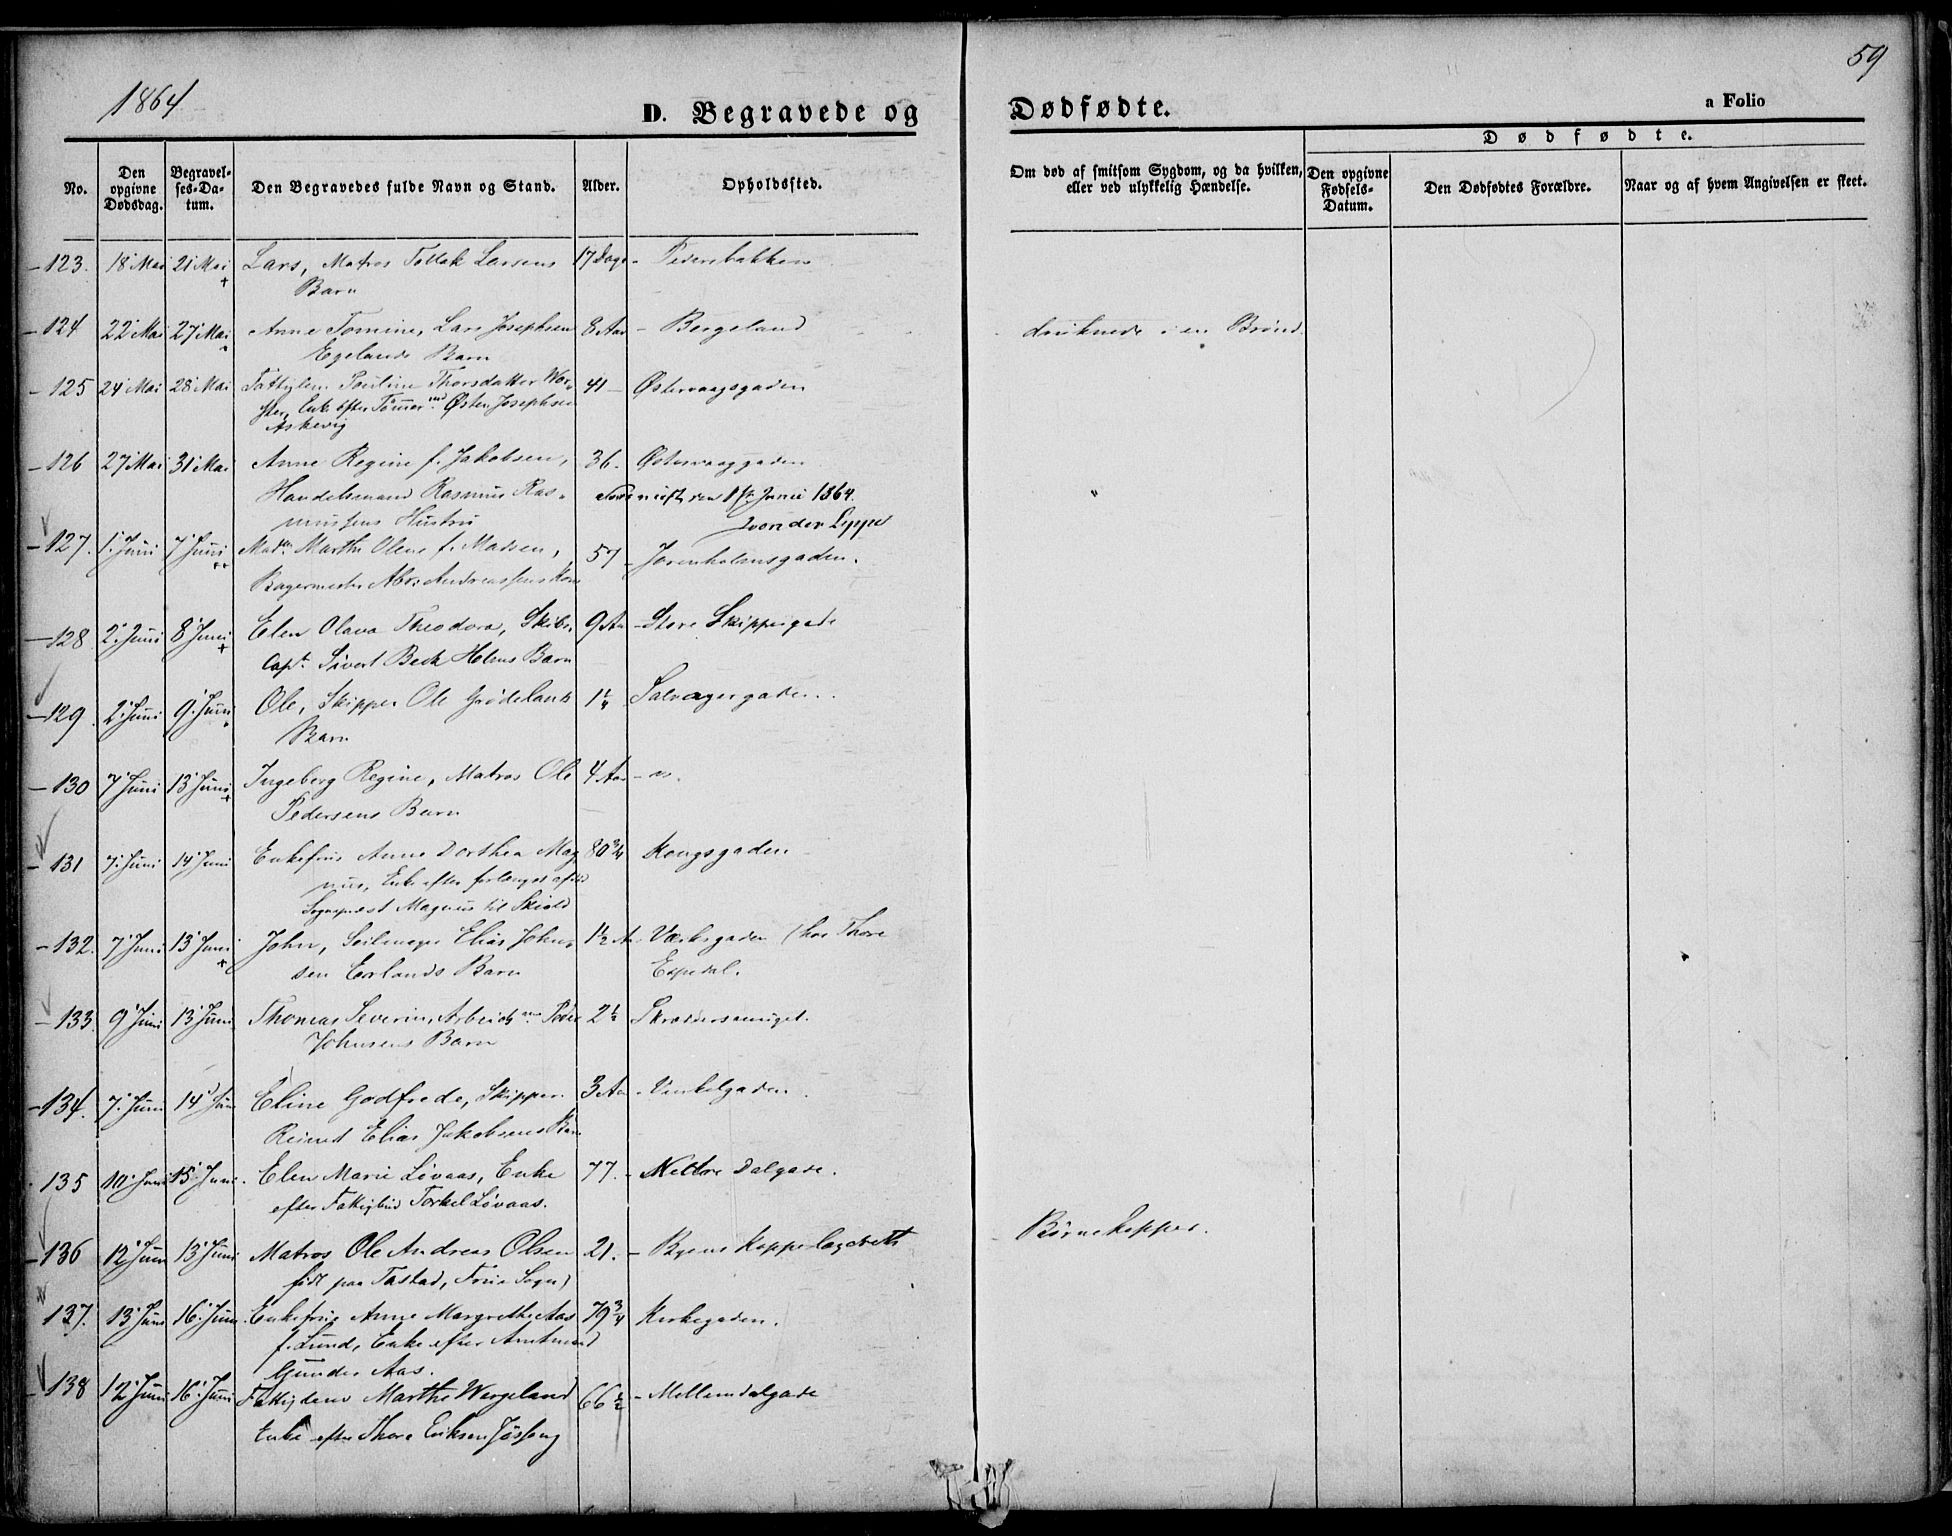 1864
59
D. Begravede og Dødfødte.
a Folio
No.
Den opgivne Dødsdag.
Begravelses-Datum.
Den Begravedes fulde Navn og Stand.
Alder.
Opholdssted.
Om død af smitsom Sygdom, og da hvilken, eller ved ulykkelig Hændelse.
Dødfødte.
Den opgivne Fødsels-Datum.
Den Dødfødtes Forældre.
Naar og af hvem Angivelsen er skeet.
123. 18 Mai 21 Mai Lars, Matros Tollak Larsens 17 Dage - Pedersbakken
Barn
124 22 Mai 27 Mai Anne Tomine, Lars Josephsen 8 Aar - Bergeland druknede i en Brønd
Egelands Barn
125 24 Mai 28 Mai Fattiglem Pauline Thorsdatter 41 - Østervaagsgaden
Enke efter Tømmermd Østen Josephsen
Askevig
126 27 Mai 31 Mai Anne Regine f. Jakobsen, 36. Østervaaggaden
Handelsmand Rasmus Ras-
mussens Hustru
den 1ste Junii 1864.
von der Lippe
127. 1 Juni 7 Juni Madm Marthe Olene f. Madsen, 57 - Jorenholmsgaden.
Bagermester Abr. Andreassens Kone
128 2 Juni 8 Juni Elen Olava Theodora, Skibs- 9 Aar - Store Skippergade
Capt. Sivert Bech Holms Barn
129 2 Juni 9 Juni Ole, Skipper Ole Grødelands 1 1/4 Salvagergaden.
Barn
130 7 Juni 13 Juni Ingeborg Regine, Matros Ole 4 Aar -
Pedersens Barn
131 7 Juni 14 Juni Enkefrue Anne Dorthea Mag- 80 3/4 Kongsgaden
nus, Enke efter forlængst afdød
Sognepræst Magnus til Skiold
132. 7 Juni 13 Juni John, Seilmager Elias John- 1 1/2 Aar Værksgaden (hos Thore
sen Eorlands Barn Espedal.
133 9 Juni 13 Juni Thomas Severin, Arbeidsm. Peder 2 1/2 Skræddersmuget.
Johnsens Barn
134. 7 Juni 14 Juni Eline Godfrede, Skipper 3 Aar - Vinkelgaden.
Reinert Elias Jakobsens Barn
135 10 Juni 15 Juni. Elen Marie Løvaas, Enke 77. - Nedre Dalgade.
efter Fattiglem Torkel Løvaas.
136 12 Juni 13 Juni Matros Ole Andreas Olsen 21. - Byens Koppelazareth Børnekopper.
født paa Tastad, Frue Sogn)
137. 13 Juni 16 Juni. Enkefrue Anne Margrethe Aas 79 3/4 Kirkegaden.
f. Lund, Enke efter Amtmand
Gunder Aas.
138 12 Juni 16 Juni Marthe Wergeland 66 1/2 - Mellemdalgade
Enke efter Thore Eriksen Jøssang